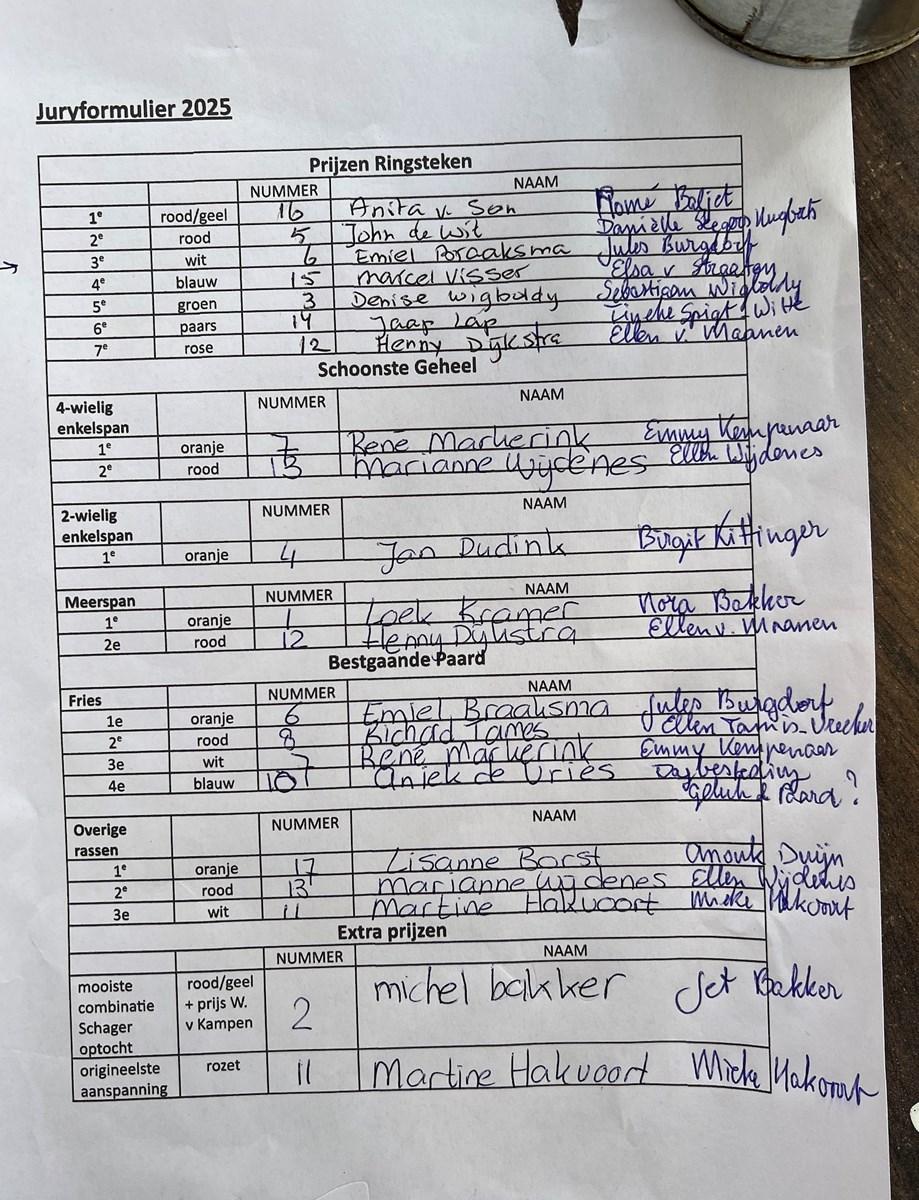 Juryformulier 2025
Prijzen Ringsteken
NUMMER NAAM
1e rood/geel 16 Anita v. Son Baljet
2e rood 5 John de Wit Daniëlle Segers
3e wit 6 Emiel Braaksma Jules Burgdorf
4e blauw 15 Marcel Visser Elsa v Straaten
5e groen 3 Denise Wigboldy Sebastiaan Wigboldy
6e paars 14 Jaap Lap Lineke Spigt Witte
7e rose 12 Henny Dijkstra Ellen v. Maanen
Schoonste Geheel
4-wielig enkelspan NUMMER NAAM
1e oranje 7 René Markerink Emmy Kempenaar
2e rood 13 Marianne Wijdenes Ellen Wijdenes
2-wielig enkelspan NUMMER NAAM
1e oranje 4 Jan Dudink Birgit Kittinger
Meerspan NUMMER NAAM
1e oranje 1 Loek Kramer Nora Bakker
2e rood 12 Henny Dijkstra Ellen v. Maanen
Bestgaande Paard
Fries NUMMER NAAM
1e oranje 6 Emiel Braaksma Jules Burgdorf
2e rood 8 Richad Tames Ellen Tamis-Vrecker
3e wit 7 René Markerink Emmy Kempenaar
4e blauw 10 Aniek de Vries Dagbesteding
Geluk & Paard?
Overige rassen NUMMER NAAM
1e oranje 17 Lisanne Borst Anouk Duijn
2e rood 13 Marianne Wijdenes Ellen Wijdenes
3e wit 11 Martine Hakvoort Mieke Hakvoort
Extra prijzen
NUMMER NAAM
mooiste combinatie Schager optocht rood/geel + prijs W. v Kampen 2 michel bakker Jet Bakker
origineelste aanspanning rozet 11 Martine Hakvoort Mieke Hakvoort